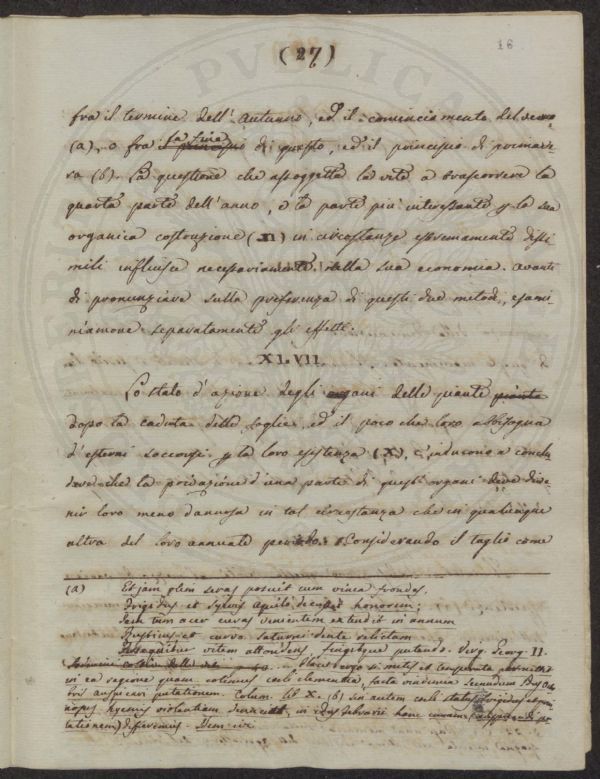 16
(27)
fra il termine dell'autunno, ed il cominciamento del verno
(a), o fra la fine di questo, ed il principio di primave-
ra (b). La questione che assoggetta la vite a trascorrere la
quarta parte dell'anno, e la parte più interessante p la sua
organica costruzione (XI) in circostanze estremamente dissi
mili influisce necessariamente sulla sua economia. Avanti
di pronunziare sulla preferenza di questi due metodi, esami-
niamone separatamente gli effetti.
XLVII
Lo stato d'azione degli organi delle piante
dopo la caduta delle foglie, ed il poco che loro abbisogna
d'esterni soccorsi p la loro esistenza (X), c'inducono a conclu
dere che la privazione d'una parte di questi organi deve dive
nir loro meno dannosa in tal circostanza che in qualunque
altra del loro annuale periodo. Considerando il taglio come
(a) Et jam olim seras posuit cum vinea frondes,
Frigidus et sylvis aquilo decussit honorem;
Jam tum acer curas venientem extendit in annum
Rusticus et curvo Saturni dente relictam
Persequitur vitem attondens, fingitque putando. Virg. Georg. II.
Placet ergo si mitis et temperata permittit
in ea regione quam colimus coeli clementia, facta vindemia secundum Idus Octo
bris auspicari putationem. Colum. lib X. (b) sin autem coeli status frigidus et prui
nosus hyemis violentiam denunciat, in Idus Februarii hanc curam
differemus. Idem